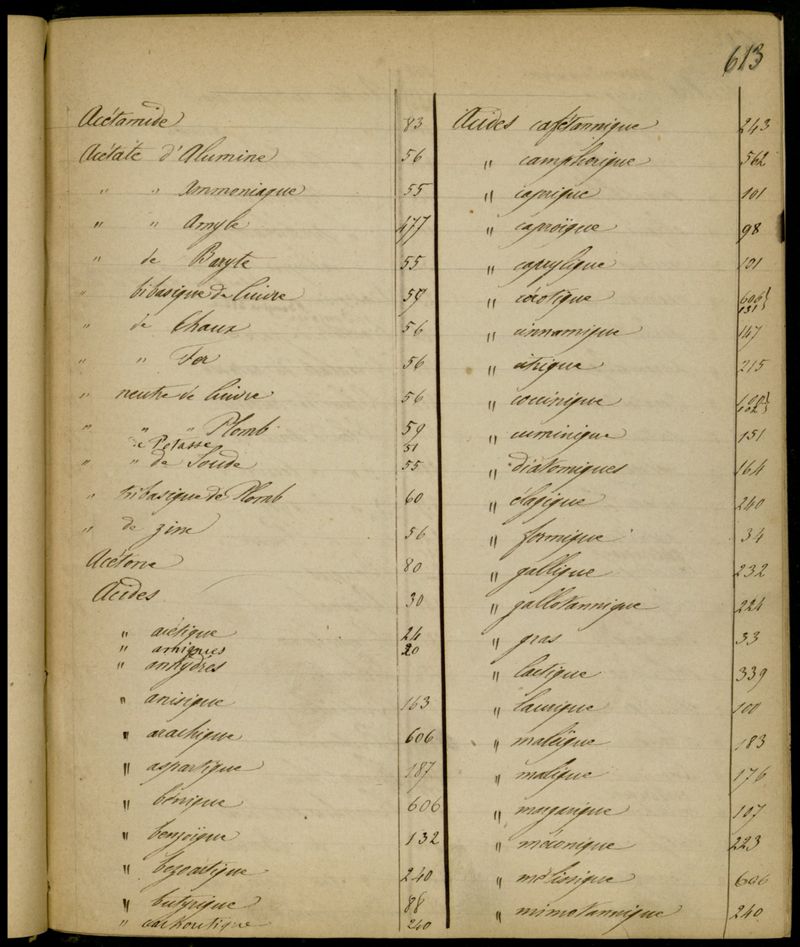 613
Acétamide 83
Acétate d'Alumine 56
" " Ammoniaque 55
" " Amyle 477
" de Baryte 55
" bibasique de Cuivre 59
" de Chaux 56
" " Fer 56
" neutre de Cuivre 56
" " " Plomb 59
de Potasse 51
" " de Soude 55
" tribasique de Plomb 60
" de zinc 56
Acétone 80
Acides 30
" acétique 24
" amiques 20
" anhydres
" anisique 163
" arachique 606
" aspartique 187
" bénique 606
" benzoïque 132
" bezoartique 240
" butyrique 88
" 240
Acides cafétannique 243
" camphorique 562
" caprique 101
" caproïque 98
" caprylique 101
" cérotique 606
131
" cinnamique 147
" citrique 215
" coccinique 100
102
" cuminique 151
" diatomiques 164
" elagique 240
" formique 34
" gallique 232
" gallotannique 224
" gras 33
" lactique 339
" laurique 100
" maléïque 183
" malique 176
" margarique 107
" méconique 223
" mélissique 606
" mimotannique 240